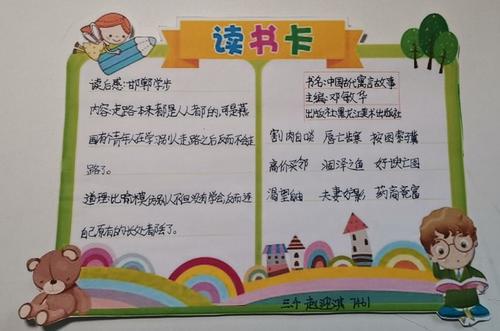 读书卡
读后感:邯郸学步
内容:走路本来都是人人都的,可是燕
国有个青年人在学别人走路之后反而不会走
路了。
道理:比喻模仿别人不但没有学会反而连
自己原有的长处都丢了。
书名:中国古代寓言故事
主编:邓敏华
出版社:黑龙江美术出版社
割肉自啖 唇亡齿寒 按图索骥
高价买邻 涸泽之鱼 好
渴望自由 夫妻
三个